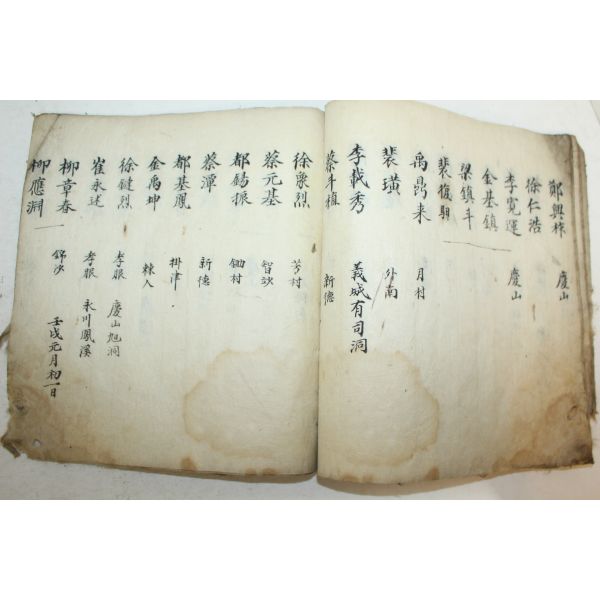 鄭興林 慶山
徐仁浩
李寬運 慶山
金基鎮
梁鎮斗
裴復
禹昴来 月村
裴璜 外南
李載秀 義城有司洞
蔡斗植 新德
徐彖烈 芳村
蔡元基 智
都錫振 鋤村
蔡潭 新德
都基鳳 掛津
金禹坤 棘人
徐鍵烈 孝服 慶山旭洞
崔永述 孝服 永川鳳溪
柳章春 錦沙
柳應洞 壬戌元月初一日